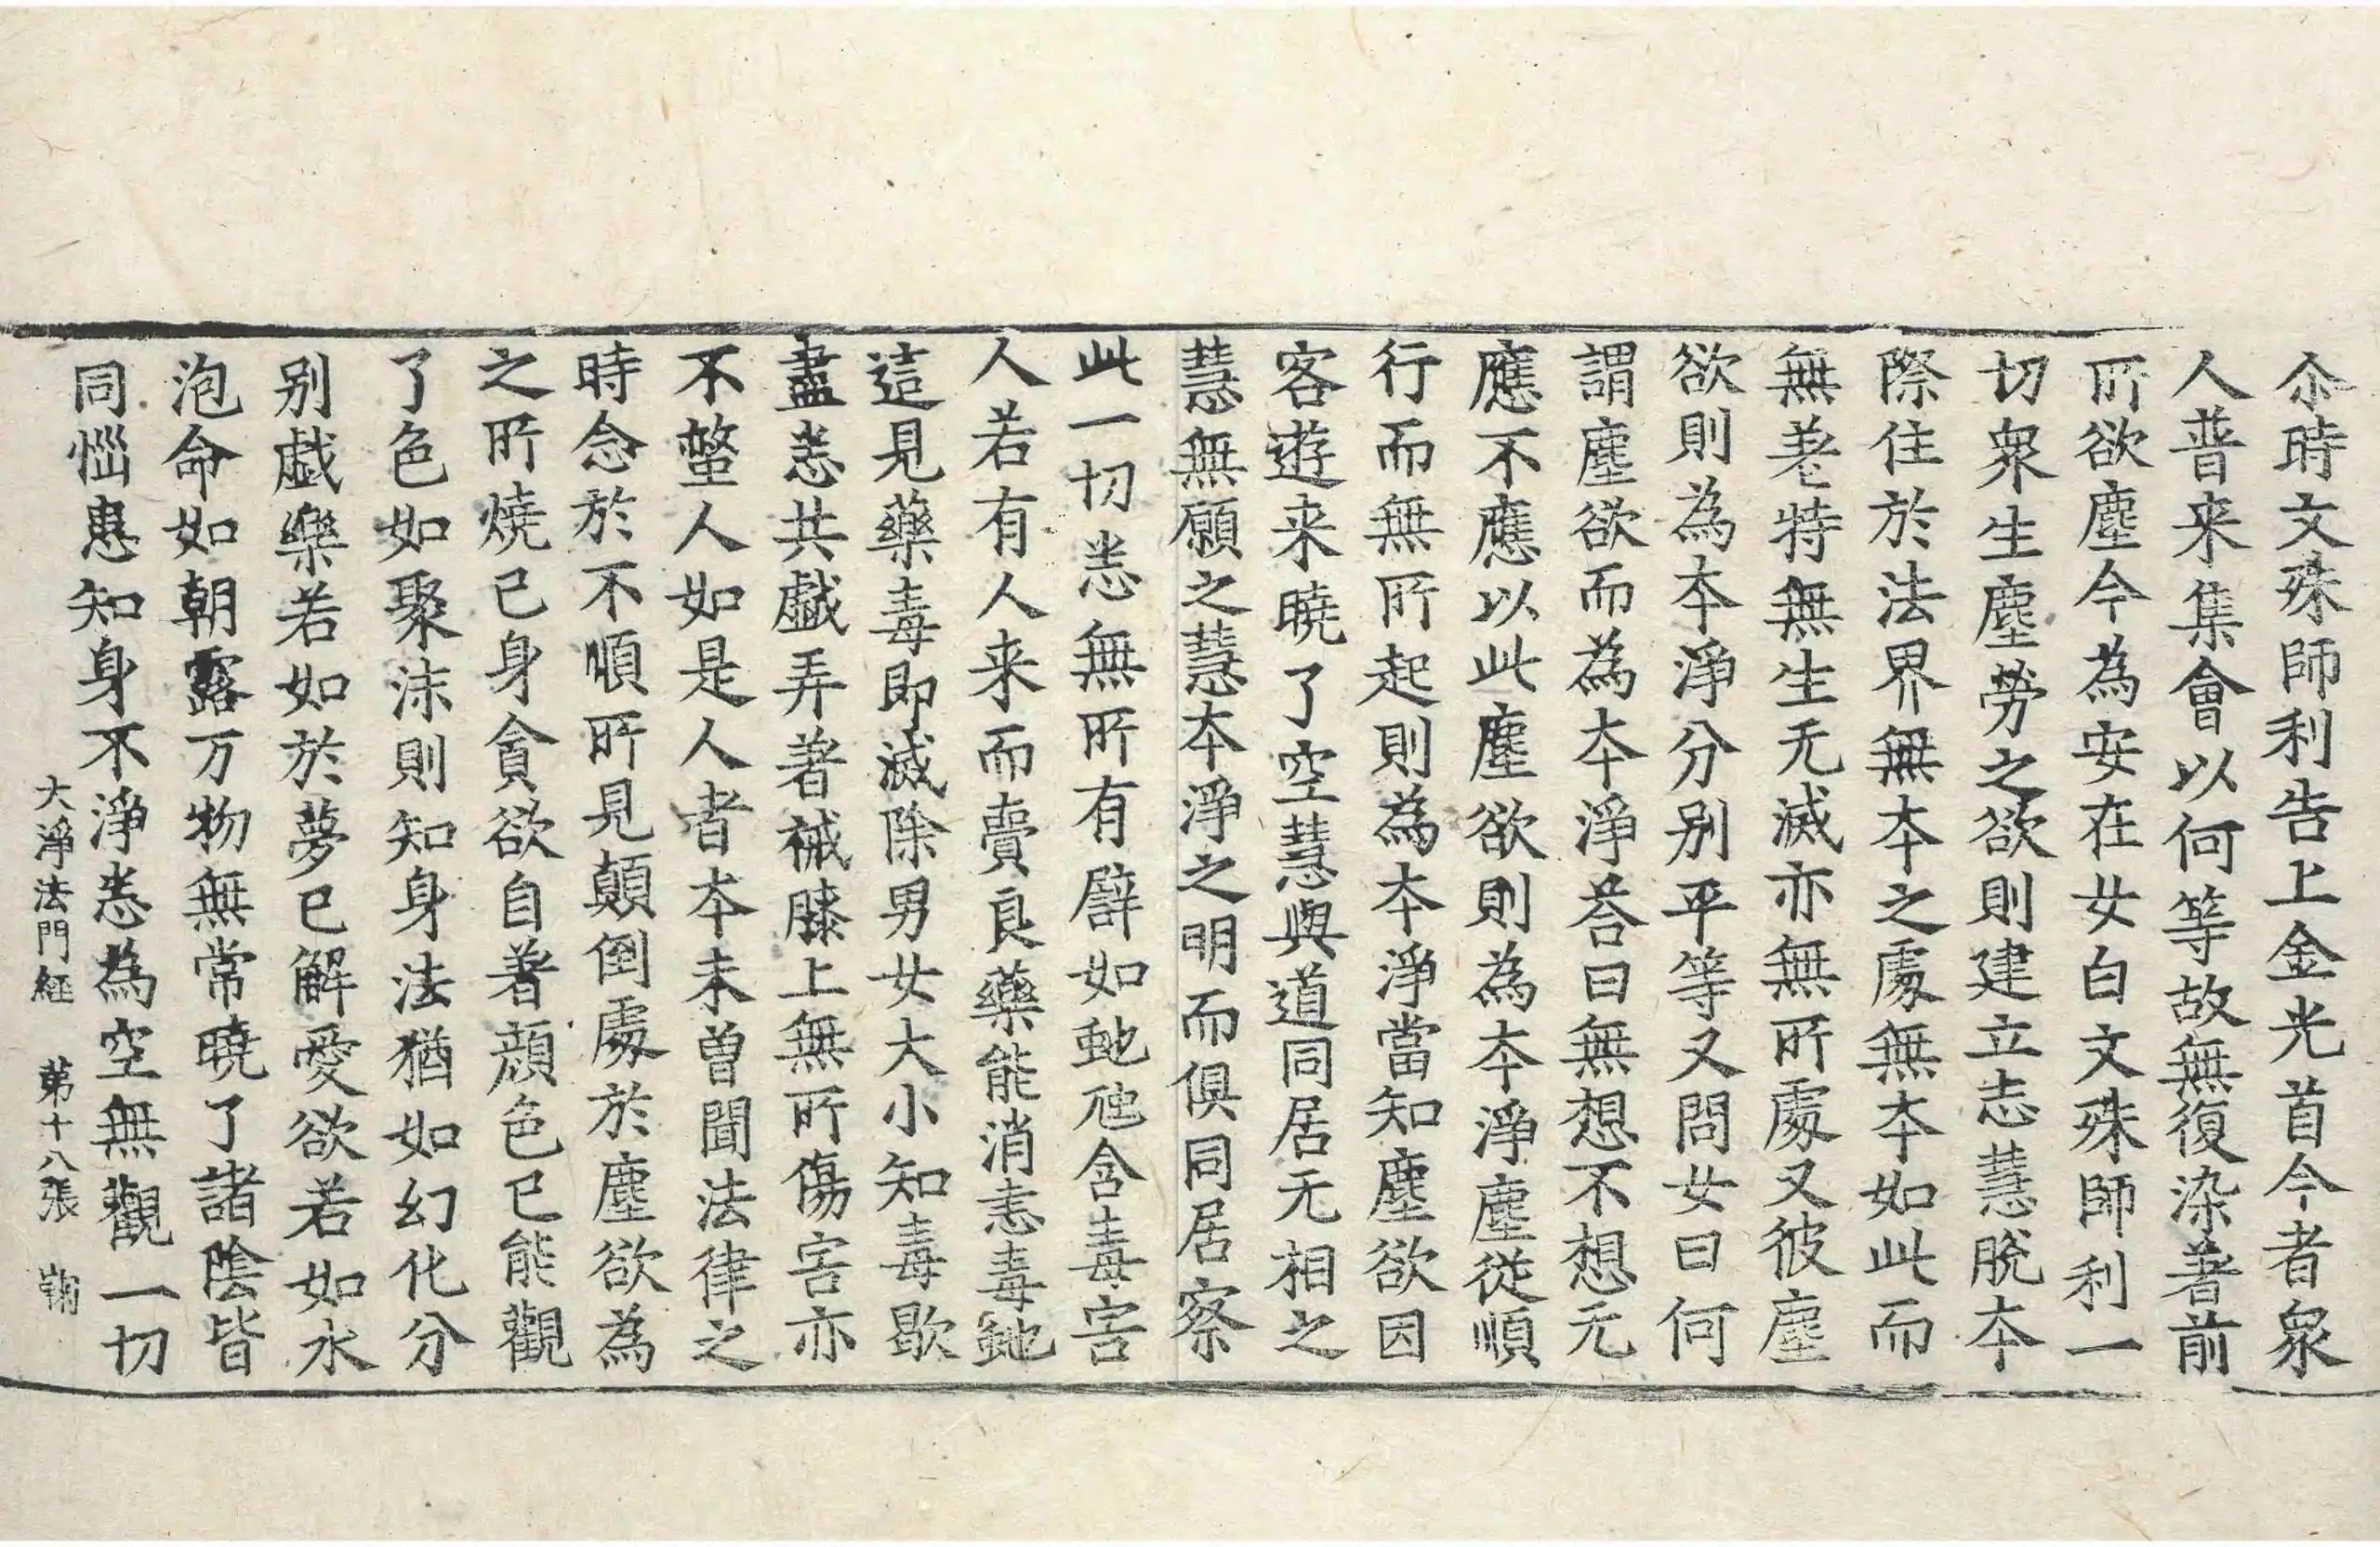 尒時文殊師利告上金光首今者衆
人普来集會以何等故無復染著前
所欲塵今為安在女白文殊師利一
切衆生塵勞之欲則建立志慧脫本
際住於法界無本之處無本如此而
無老特無生无滅亦無所處又彼塵
欲則為本淨分别平等又問女曰何
謂塵欲而為本淨荅曰無想不想无
應不應以此塵欲則為本淨塵從順
行而無所起則為本淨當知塵欲因
客遊来曉了空慧與道同居无相之
慧無願之慧本淨之明而俱同居察
此一切恚無所有譬如虵虺含毒害
人若有人来而賣良藥能消恚毒虵
這見藥毒即滅除男女大小知毒歇
盡恚共戲弄著襯膝上無所傷害亦
不螫人如是人者本未曽聞法律之
時念於不順所見顛倒處於塵欲為
之所燒已身貪欲自著顔色已能觀
了色如聚沫則知身法猶如幻化分
别戲樂若如於夢已解愛欲若如水
泡命如朝露万物無常曉了諸陰皆
同惱患知身不淨悉為空無觀一切
大淨法門経 第十八張